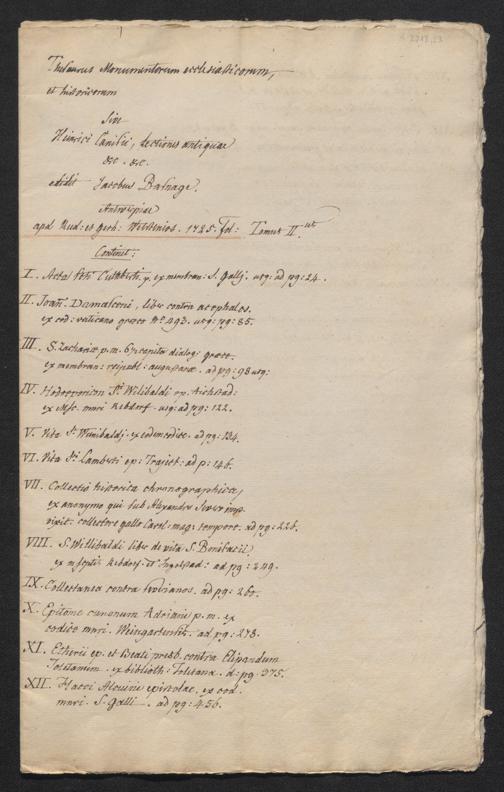 Thesaurus Monumentorum ecclesiasticorum,
et historicorum
Sive
Henrici Canisii, Lectiones antiquae
&c. &c.
edidit Jacobus Basnage.
Antverpiae
apd Rud: et Gerh: Wetstenios. 1725. fol: Tomus II.us
Continet:
I. Acta Sti Cuthberti, ex membran: S. Galli. usq: ad pg: 24.
II. Joan. Damasceni, liber contra acephalos.
ex cod: vaticano graeco No. 493. usq: pg: 85.
III. S. Zachariae p. m. capita dialog: graece.
ex membran: reipubl: augustanae. ad pg: 98 usq:
IV. Hodoeporicon St. Wilibaldi ep. Aichstad:
ex Msc. mnri Rebdorf. usq: ad pg: 122.
V. Vita St. Wunibaldj. ex eodem codice. ad pg: 134.
VI. Vita St. Lamberti ep: Traject: ad p: 146.
VII. Collectio historica chronographica,
ex anonymo qui sub Alexandro Severo imp.
vixit. collectore gallo Carol: mag: tempore. ad pg: 226.
VIII. S. Willibaldi liber de vita S. Bonifacii,
ex msptis Rebdorf: et Ingolstad: ad pg: 249.
IX. Collectanea contra ad pg: 260.
X. Epitome canonum Adriani p. m. ex
codice mnri. Weingartensis. ad pg: 278.
XI. Etherii ep. et Beati presb. contra Elipandum
Toletanum. ex biblioth: Toletana. d: pg: 375.
XII. Flacci Alcuini epistolae. ex cod.
mnri. S. Galli. ad pg: 456.